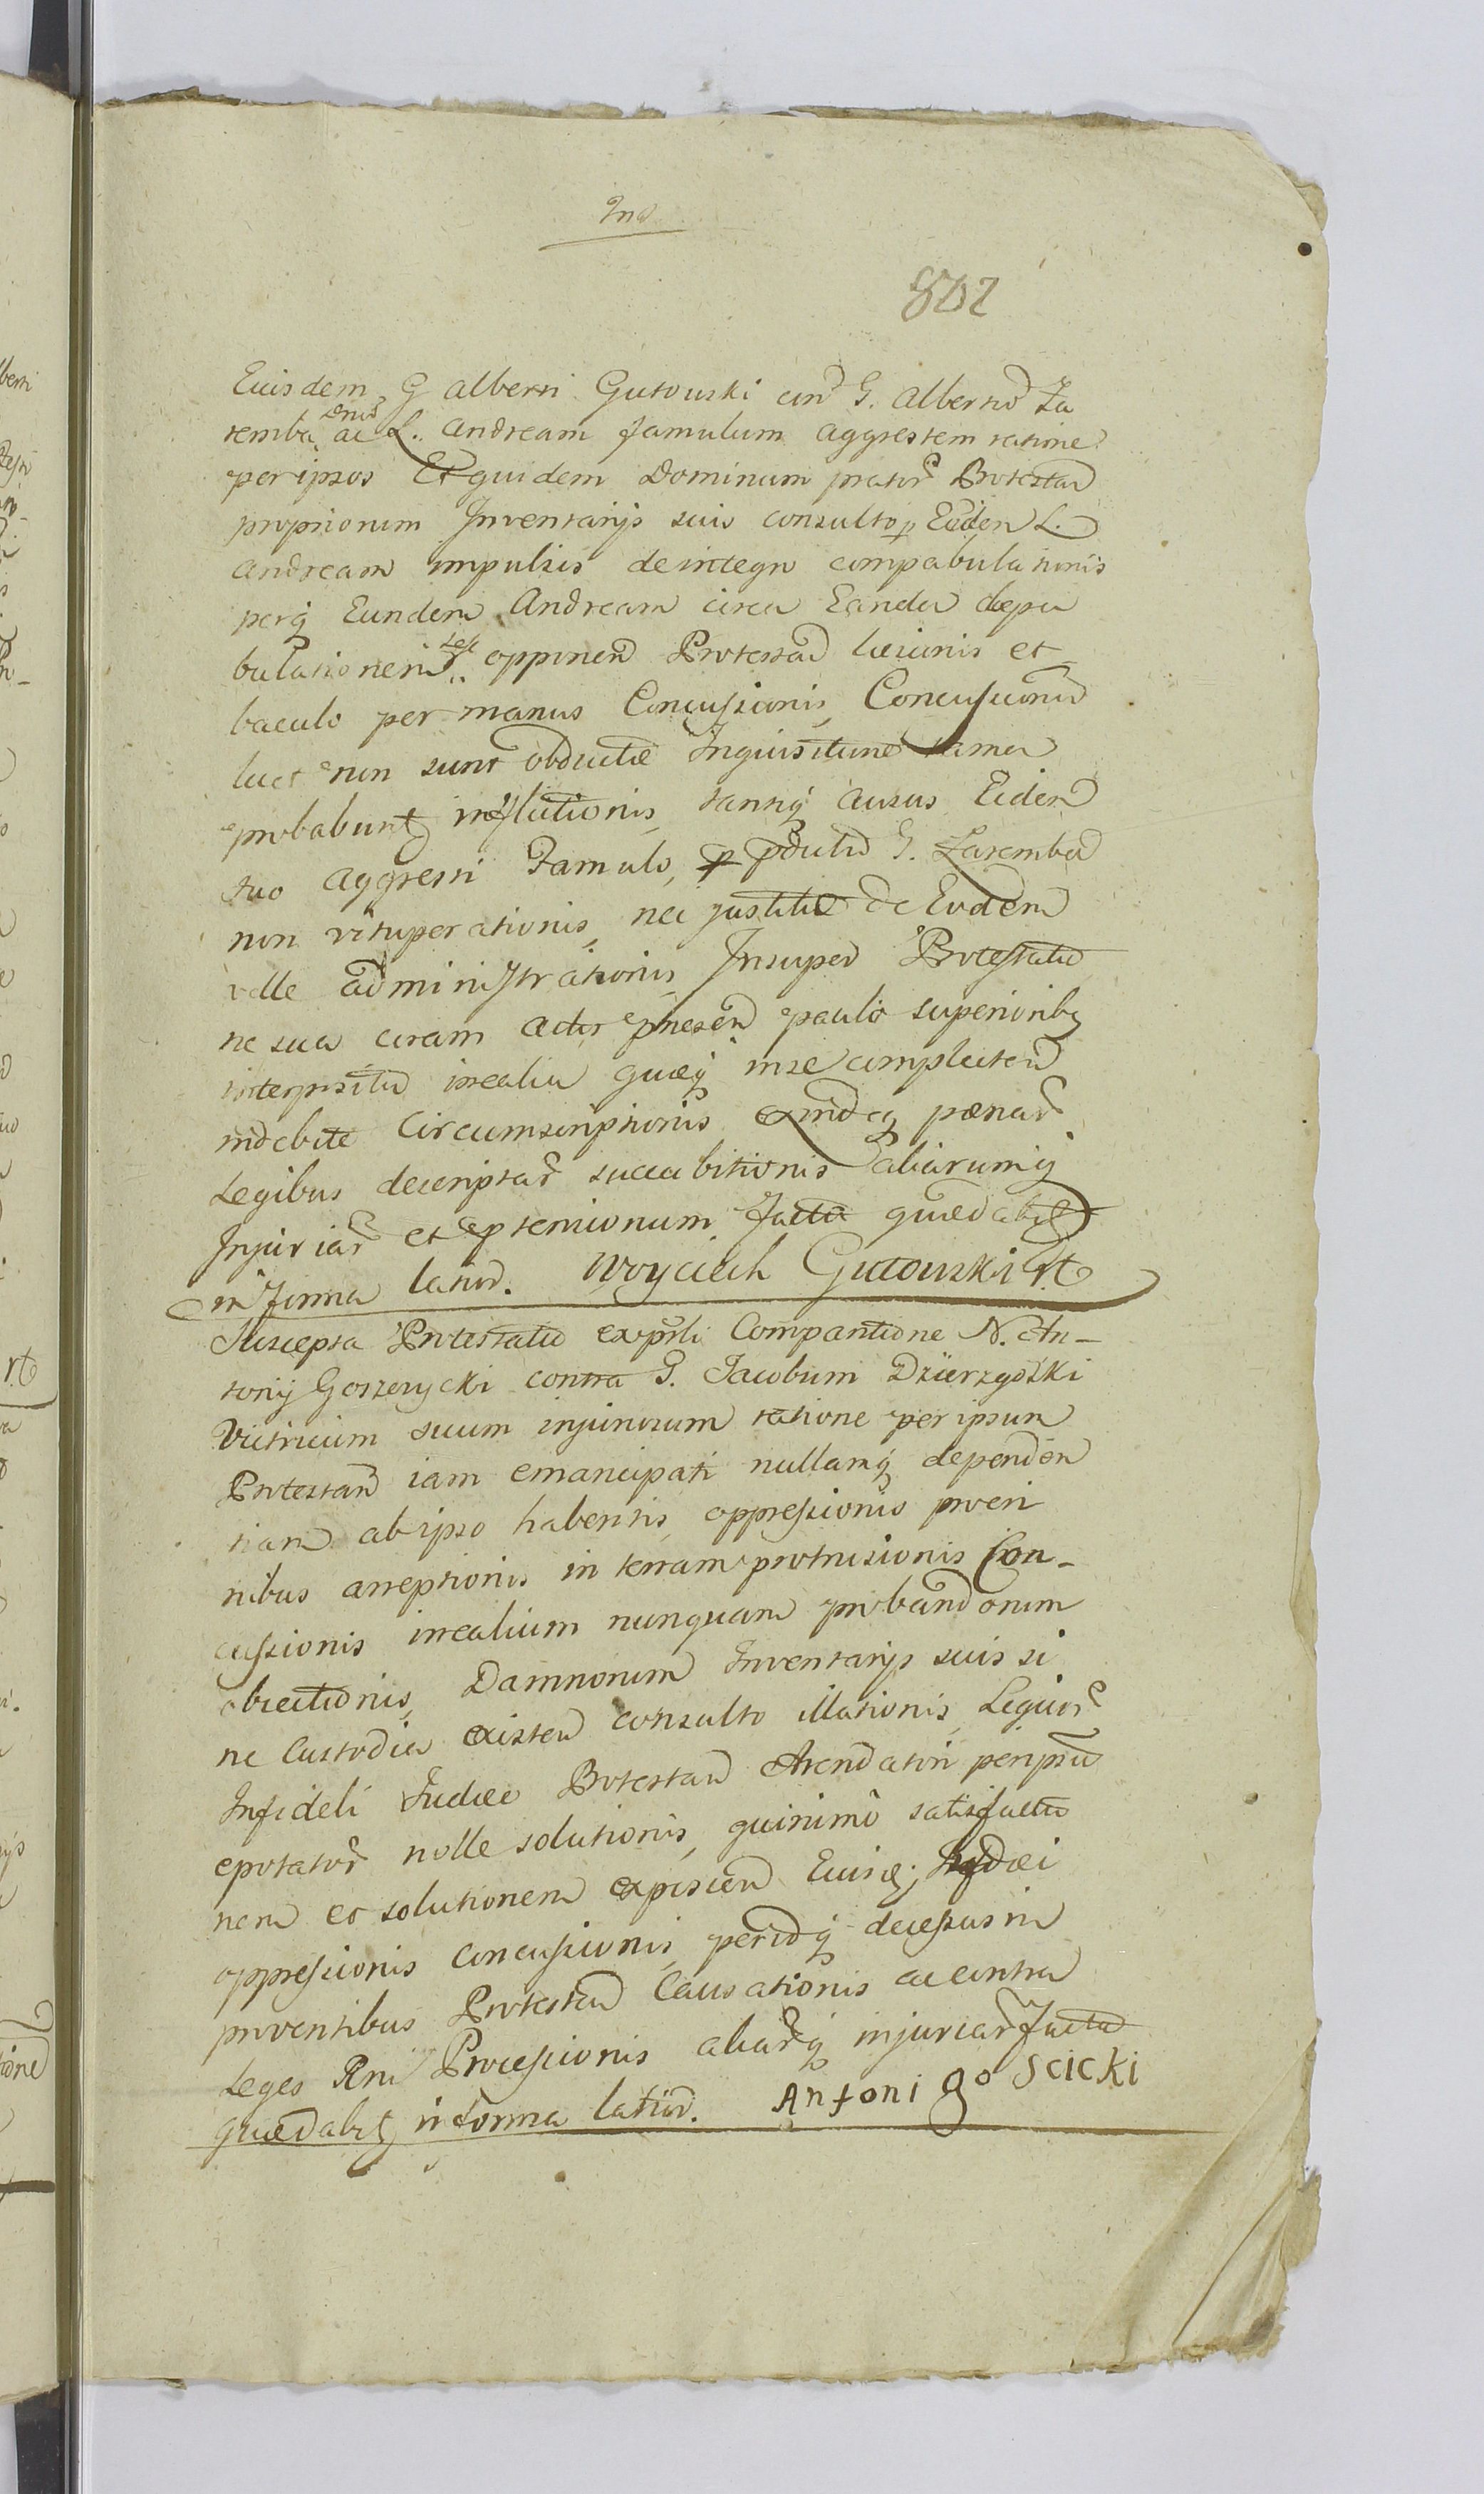 802
Euisdem G Alberti Gutowski cum G. Alberto Za
remba Dno ac L. Andream famulum aggrestem ratione
per ipsos Et quidem Dominum prator Protestan
propriorum Inventarijs suis consulto p Eunden L.
Andream impulsis de integro compabulationis
perq Eundem Andream circa Eanden depa
bulationem se opponen Protestan læsionis et
baculo per manus Concussionis, Concussiones
licet non sunt obductæ Inquisitione tamen
probabunt inflictionis, tantiq ausus Eiden
suo aggresti Famulo, p pdictum G. Zaremba
non vituperationis, nec justitiæ de Eodem
velle administrationis, Insuper Protestatio
ne sua coram Actis præsen paulo superioribq
interposita irealia quæq in se complecten
indebite Circumscriptionis Exindeq pænar
Legibus descriptar succubitionis aliarumq
Injuriar et eptensionum facta quædabit
in forma latior. Woyciech Gutowski rt
Suscepta Protestatio ex psli Comparitione N. An-
tonij Goszczycki contra G. Jacobum Dzierzgoski
Vitricum suum injuriosum ratione per ipsum
Protestan iam emancipati nullamq dependen
tiam ab ipso habentis, oppressionis pro cri
nibus arreptionis in terram protrusionis Con-
cussionis irealium nunquam probandorum
obiectionis, Damnorum Inventarijs suis si
ne Custodia existen consulto illationis, Liquor
Infideli Judæo Protestan Arendatori per ipsum
epotator nolle solutionis, quinimo satisfactio
nem et solutionem exposcen Euisq; Judæi
oppressionis concussionis, per idq decessus in
proventibus Protestan Causationis ac contra
Leges Rni Processionis aliarq injuriar facta
quædabit in forma latior. Antoni go Scicki